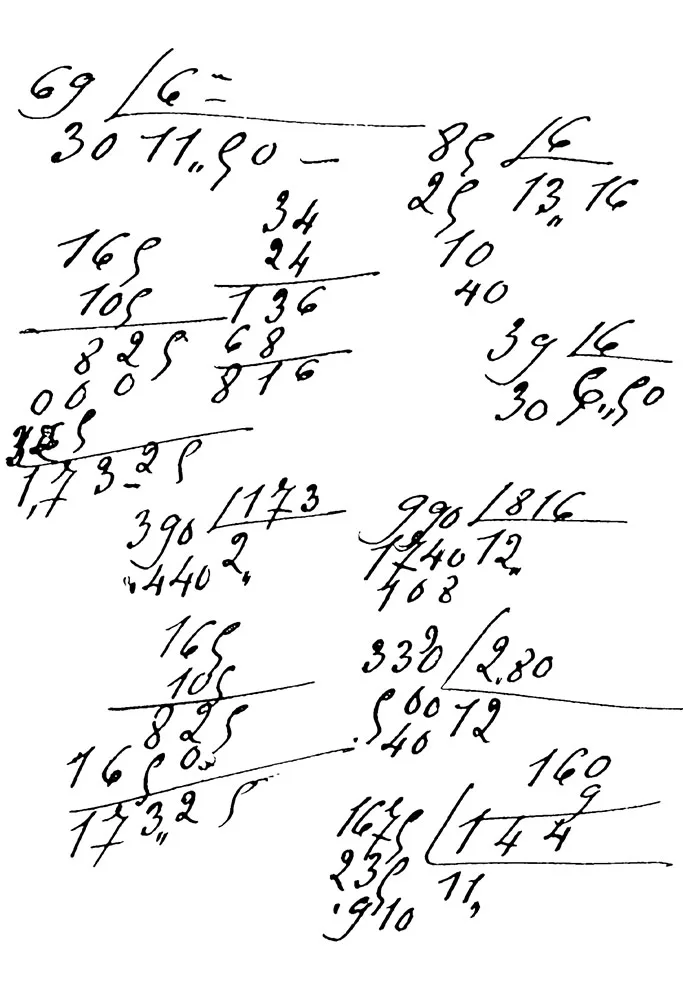 69 6 =
30 11,,50 —
85 6
25 13,,16
10
40
34
24
136
68
816
165
105
825
000
173-25
39 6
30 6,,50
390 173
440 2,,
990 816
1740 12,,
108
165
105
825
1650
173,,25
3320 2.80
500 12
40
160
9
1675 144
235 11,,
910